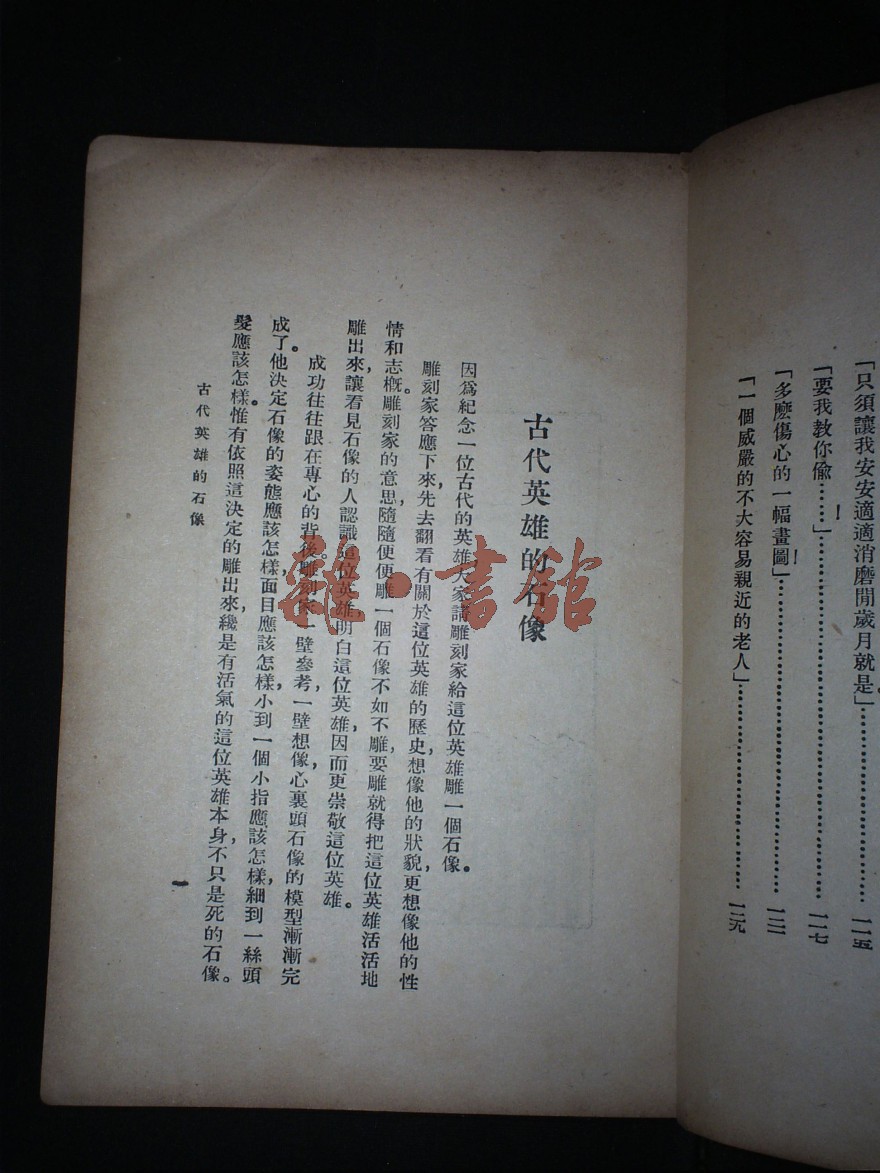 「只須讓我安安適適消磨閒歲月就是。」……………………一一五
「要我敎你偷……！」……………………一一七
「多麽傷心的一幅畫圖！」……………………一二三
「一個威嚴的不大容易親近的老人」……………………一二九
古代英雄的石像
因爲紀念一位古代的英雄大家請雕刻家給這位英雄雕一個石像。
雕刻家答應下來，先去翻看有關於這位英雄的歷史，想像他的狀貌，更想像他的性
情和志槪。雕刻家的意思隨隨便便雕一個石像不如不雕，要雕就得把這位英雄活活地
雕出來，讓看見石像的人認識這位英雄，明白這位英雄，因而更崇敬這位英雄。
成功往往跟在專心的背後。雕刻家一壁參考，一壁想像，心裏頭石像的模型漸漸完
成了。他決定石像的姿態應該怎樣，面目應該怎樣，小到一個小指應該怎樣，細到一絲頭
髮應該怎樣。惟有依照這決定的雕出來，纔是有活氣的這位英雄本身，不只是死的石像。
古代英雄的石像
一
雜·書館